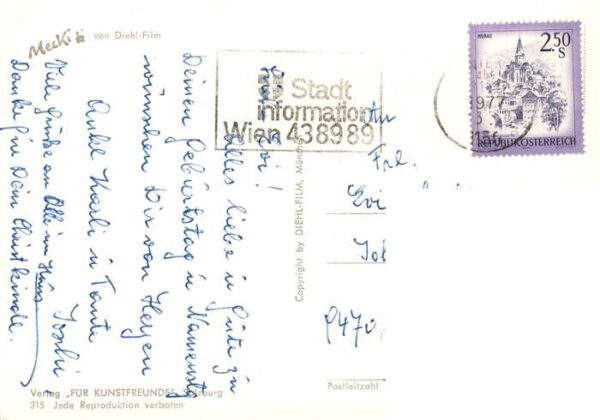 Mecki von Diehl-Film
Stadt
Information
Wien 438989
MURAU
2.50
S
REPUBLIK ÖSTERREICH
1977
Liebe Evi!
Alles liebe u Gute zu
Deinem Geburtstag u Namenstag
wünschen Dir von Herzen
Onkel Karli u Tante
Joschi
Viele Grüße an Alle im Haus
Danke für Dein Christkindl.
An
Frl.
Evi
9470
Copyright by DIEHL-FILM, München
Postleitzahl
Verlag „FÜR KUNSTFREUNDE" Salzburg
315 Jede Reproduktion verboten